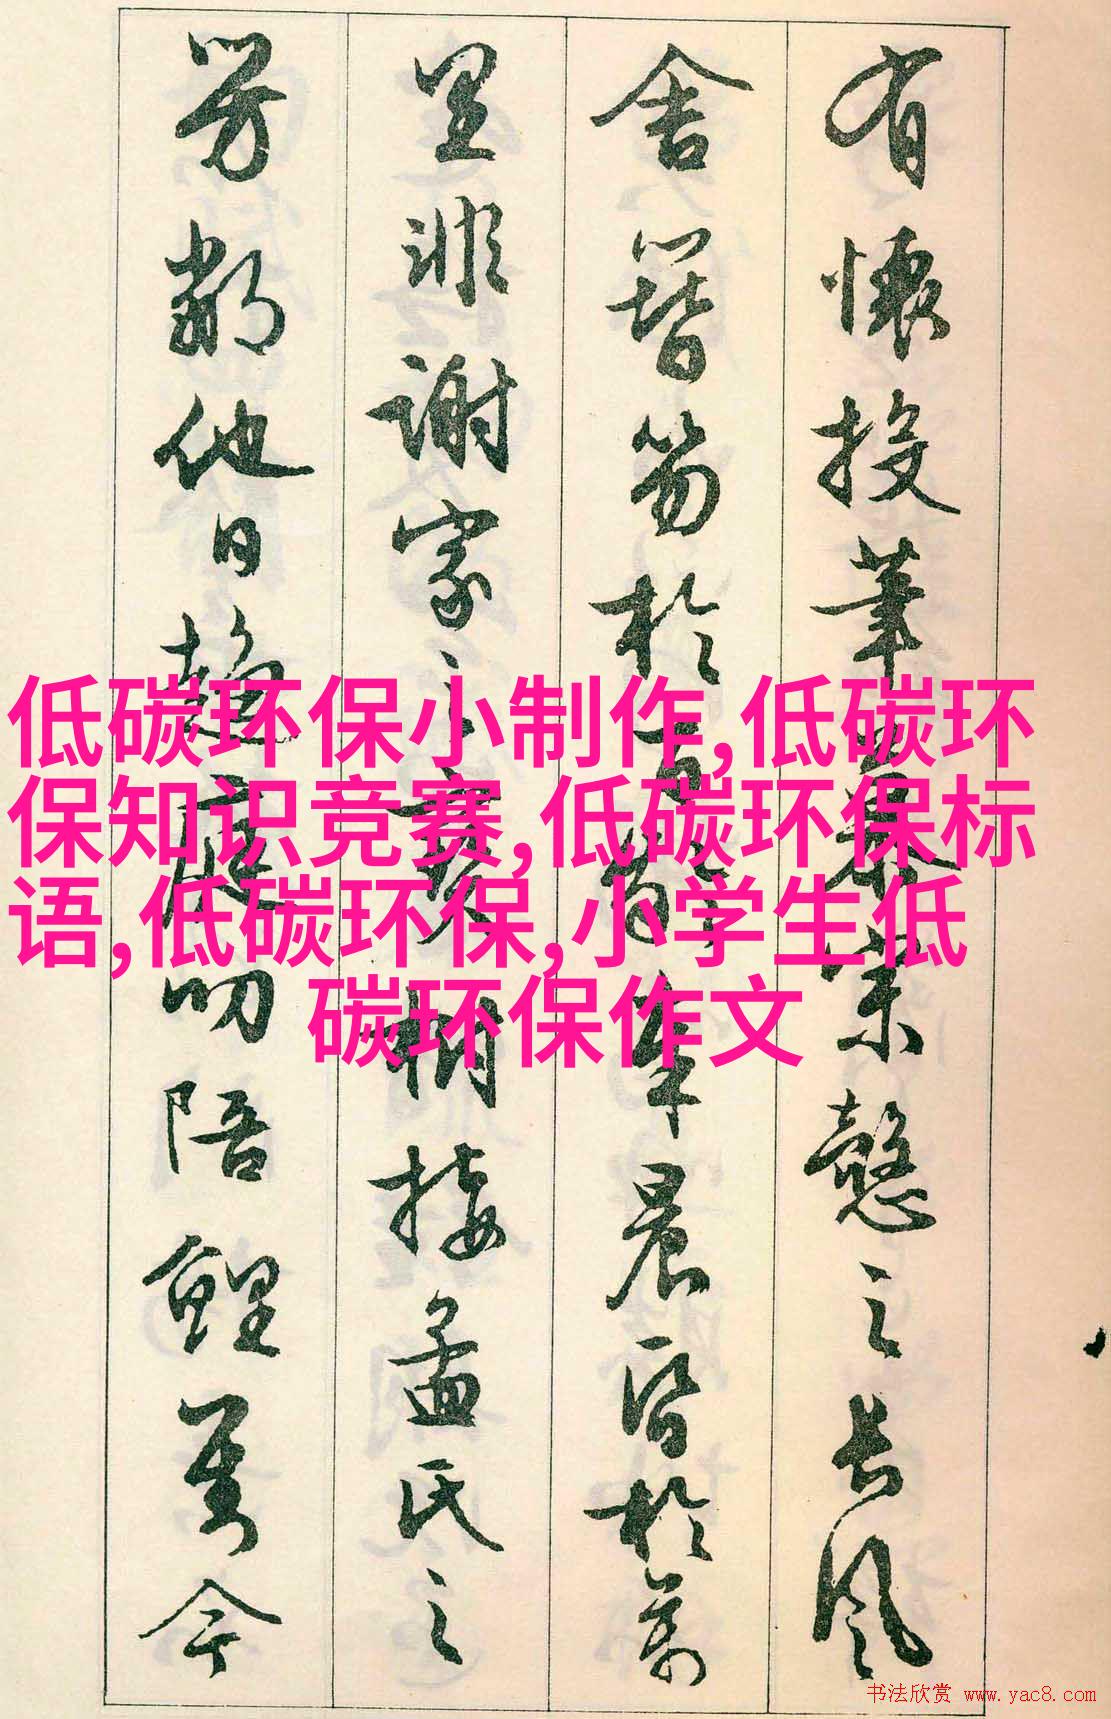 有懷投筆慕宗愨之長風
舍簪笏於百齡奉晨昏於萬
里非謝家之寶樹接孟氏之
芳鄰他日趨庭叨陪鯉對今
低碳环保小制作,低碳环
保知识竞赛,低碳环保标
语,低碳环保,小学生低
碳环保作文
书法欣赏 www.yac8.com